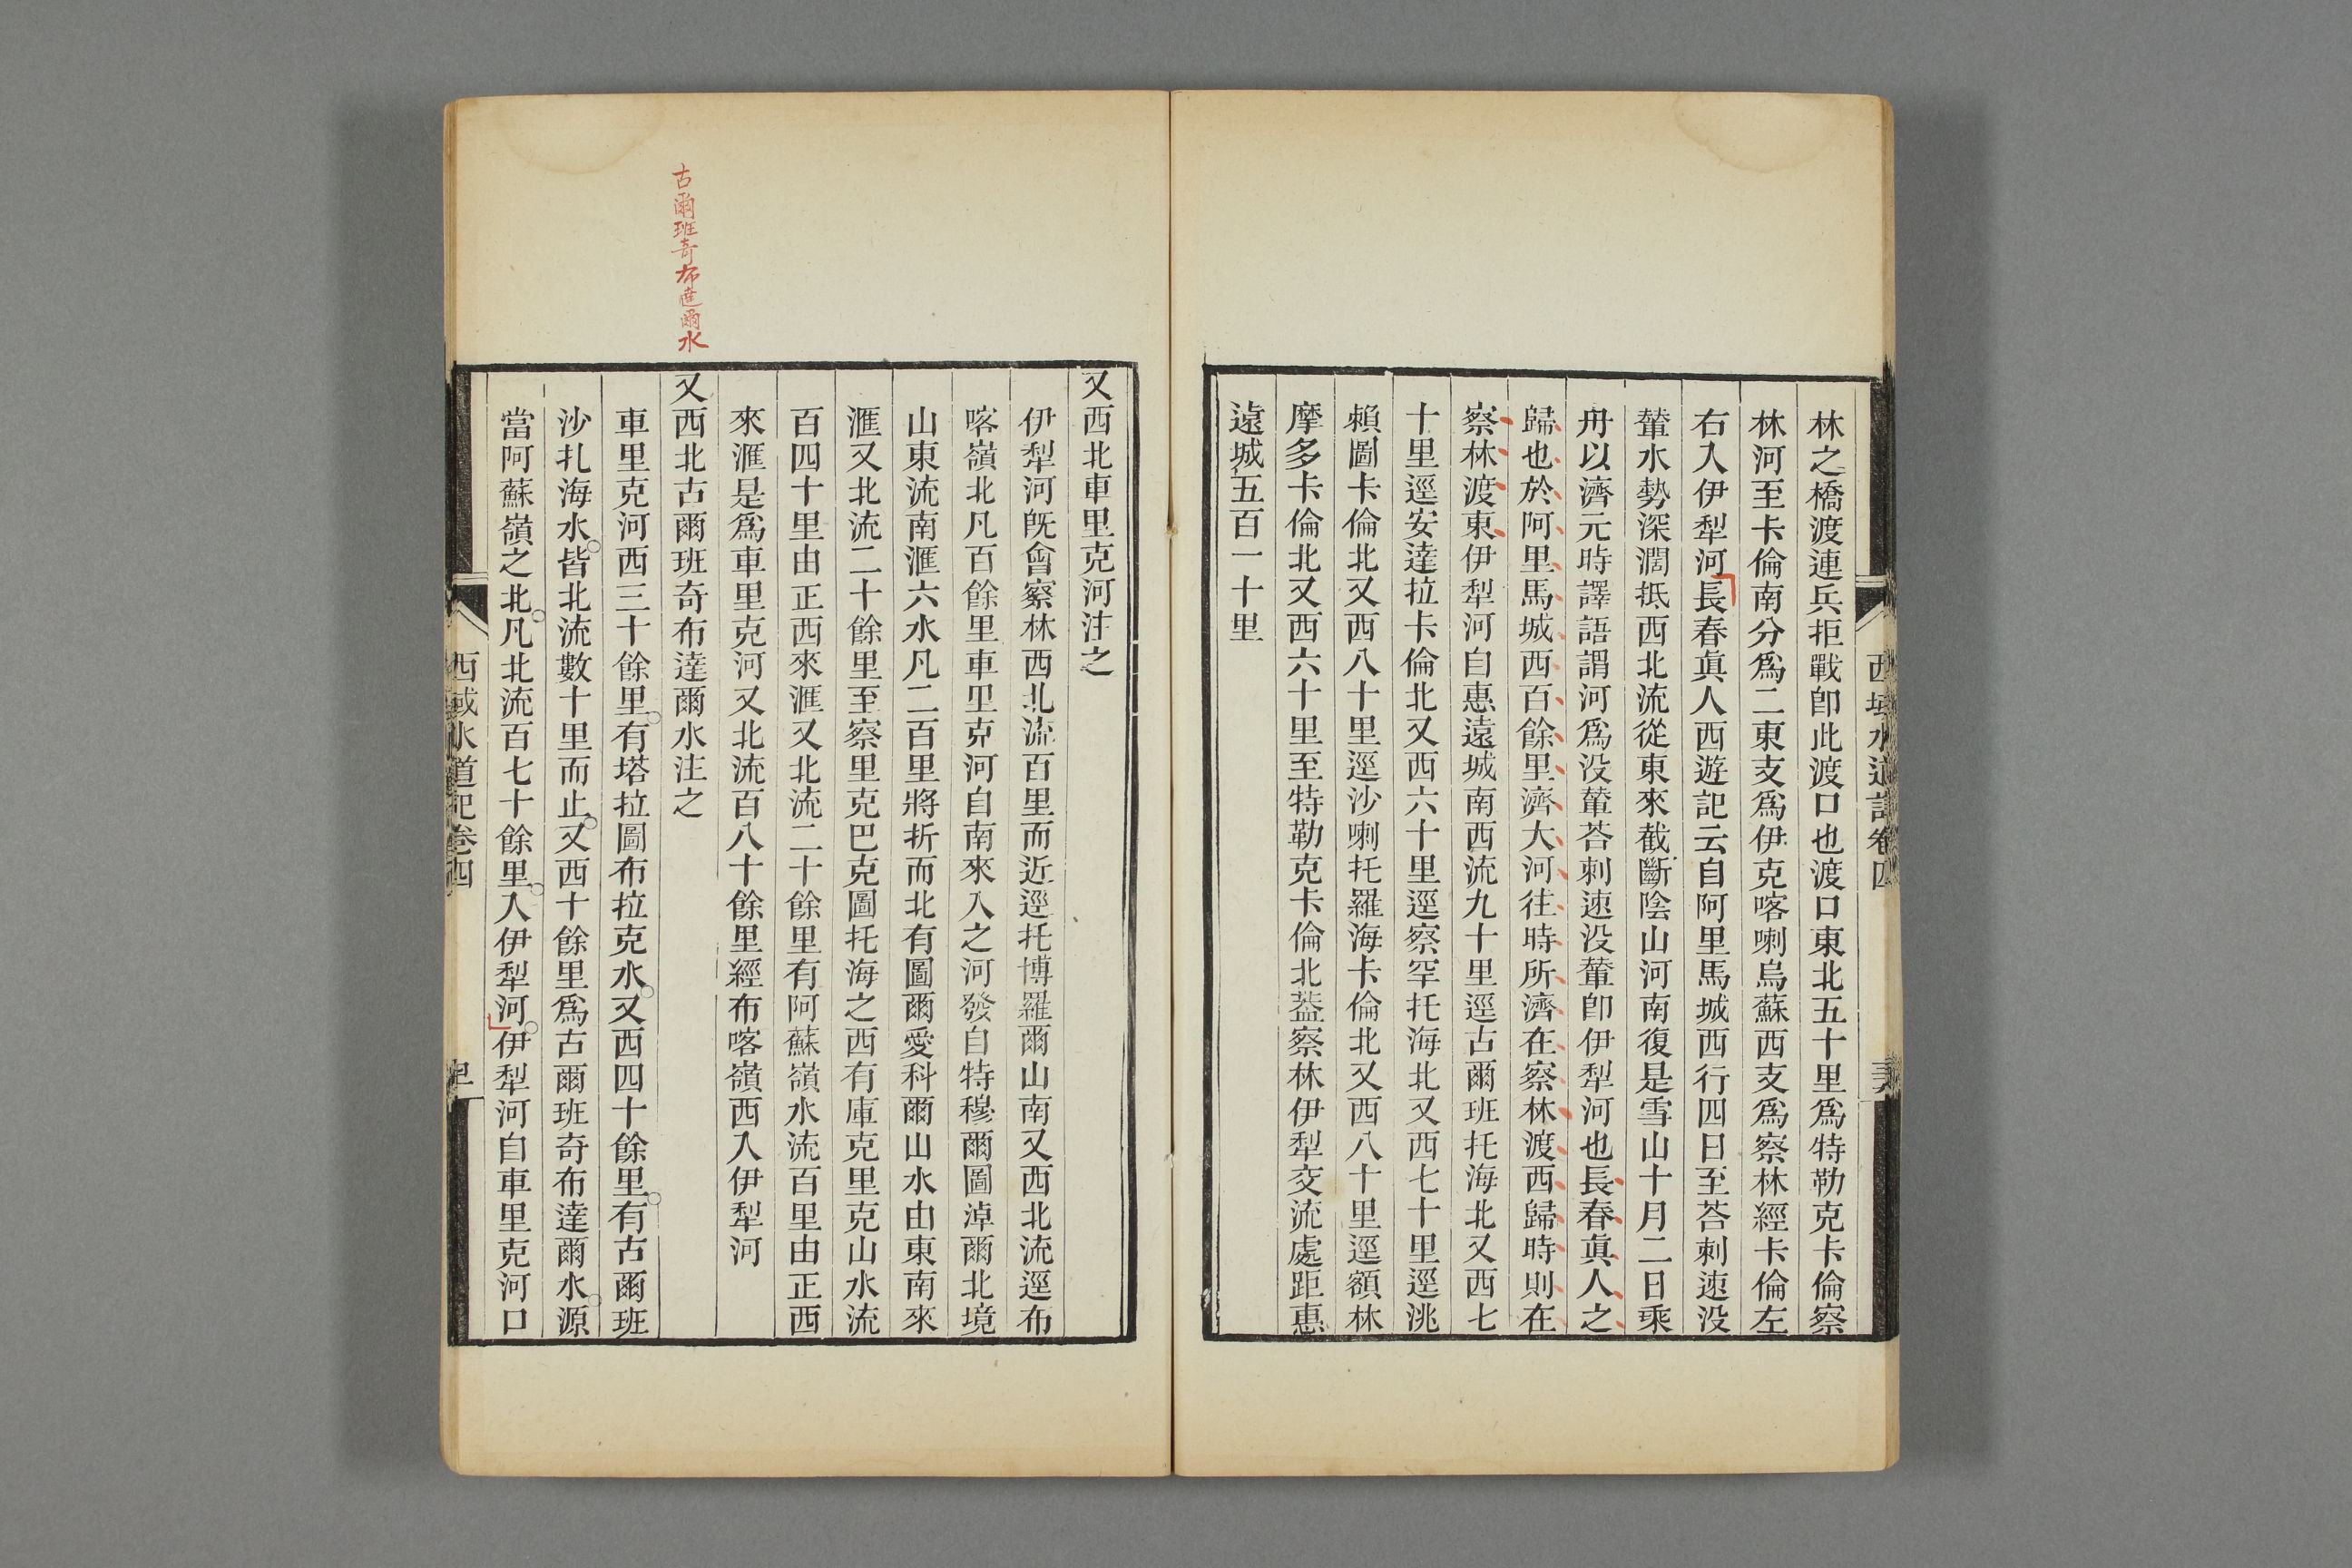 西域水道記卷四
林之橋渡連兵拒戰卽此渡口也渡口東北五十里爲特勒克卡倫察
林河至卡倫南分爲二東支爲伊克喀喇烏蘇西支爲察林經卡倫左
右入伊犁河長春眞人西遊記云自阿里馬城西行四日至荅剌速没
輦水勢深濶抵西北流從東來截斷陰山河南復是雪山十月二日乘
舟以濟元時譯語謂河爲没輦荅剌速没輦卽伊犁河也長春眞人之
歸也於阿里馬城西百餘里濟大河往時所濟在察林渡西歸時則在
察林渡東伊犁河自惠遠城南西流九十里逕古爾班托海北又西七
十里逕安達拉卡倫北又西六十里逕察罕托海北又西七十里逕洮
賴圖卡倫北又西八十里逕沙喇托羅海卡倫北又西八十里逕額林
摩多卡倫北又西六十里至特勒克卡倫北葢察林伊犁交流處距惠
遠城五百一十里
又西北車里克河注之
伊犁河旣會察林西北流百里而近逕托博羅爾山南又西北流逕布
喀嶺北凡百餘里車里克河自南來入之河發自特穆爾圖淖爾北境
山東流南滙六水凡二百里將折而北有圖爾愛科爾山水由東南來
滙又北流二十餘里至察里克巴克圖托海之西有庫克里克山水流
百四十里由正西來滙又北流二十餘里有阿蘇嶺水流百里由正西
來滙是爲車里克河又北流百八十餘里經布喀嶺西入伊犁河
古爾班奇布達爾水
又西北古爾班奇布達爾水注之
車里克河西三十餘里有塔拉圖布拉克水又西四十餘里有古爾班
沙扎海水皆北流數十里而止又西十餘里爲古爾班奇布達爾水源
當阿蘇嶺之北凡北流百七十餘里入伊犁河伊犁河自車里克河口
西域水道記卷四